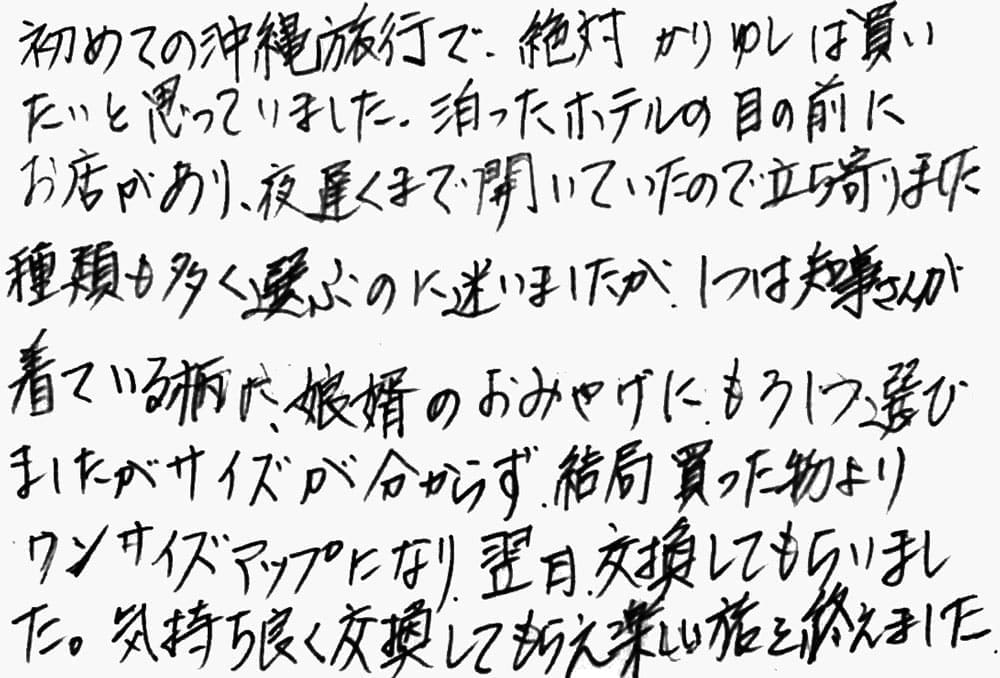 初めての沖縄旅行で、絶対かりゆしは買い
たいと思っていました。泊ったホテルの目の前に
お店があり、夜遅くまで開いていたので立ち寄りました
種類も多く選ぶのに迷いましたが、1つは知事さんが
着ている柄に、娘婿のおみやげに、もう1つ選び
ましたがサイズが分からず、結局買った物より
ワンサイズアップになり、翌日、交換してもらいまし
た。気持ち良く交換してもらえ楽しい旅を終えました。